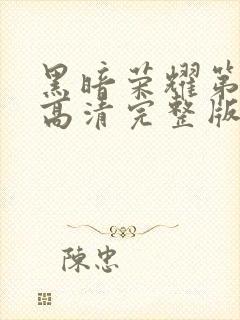 黑暗荣耀第
高清完整版
陳忠